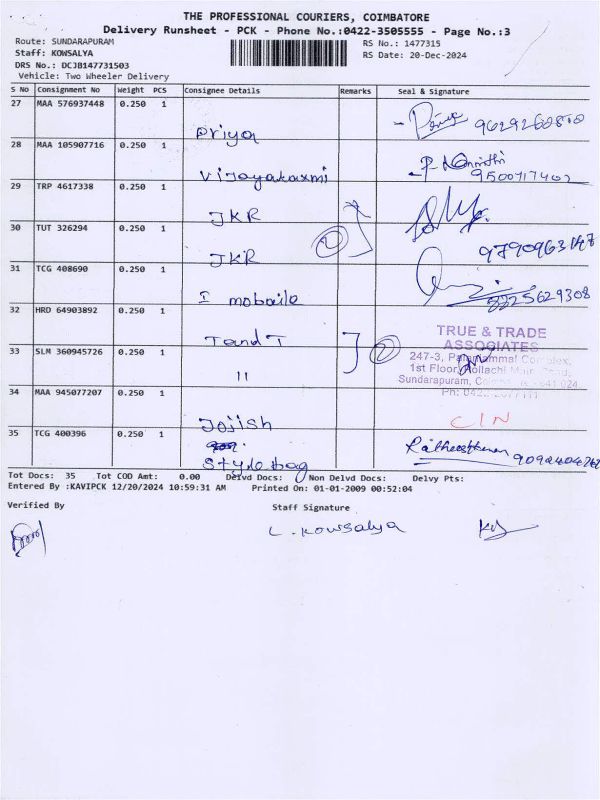 THE PROFESSIONAL COURIERS, COIMBATORE
Delivery Runsheet - PCK - Phone No.:0422-3505555 - Page No.:3
Route: SUNDARAPURAM RS No.: 1477315
Staff: KOWSALYA RS Date: 20-Dec-2024
DRS No.: DCJB147731503
Vehicle: Two Wheeler Delivery
S No Consignment No Weight PCS Consignee Details Remarks Seal & Signature
27 MAA 576937448 0.250 1
Priya
28 MAA 105907716 0.250 1
Vijayalaxmi 9500717402
29 TRP 4617338 0.250 1
JKR
30 TUT 326294 0.250 1
JKR 2 9790963147
31 TCG 408690 0.250 1
I mobaile 8225629308
32 HRD 64903892 0.250 1
T and T
33 SLM 360945726 0.250 1
11 2
TRUE & TRADE
ASSOCIATES
247-3, Palaniammal Complex,
1st Floor, Pollachi Main Road,
Sundarapuram, 641 024
34 MAA 945077207 0.250 1
Jojish CIN
35 TCG 400396 0.250 1
Style bag
Tot Docs: 35 Tot COD Amt: 0.00 Delvd Docs: Non Delvd Docs: Delvy Pts:
Entered By :KAVIPCK 12/20/2024 10:59:31 AM Printed On: 01-01-2009 00:52:04
Verified By Staff Signature
L. Kowsalya